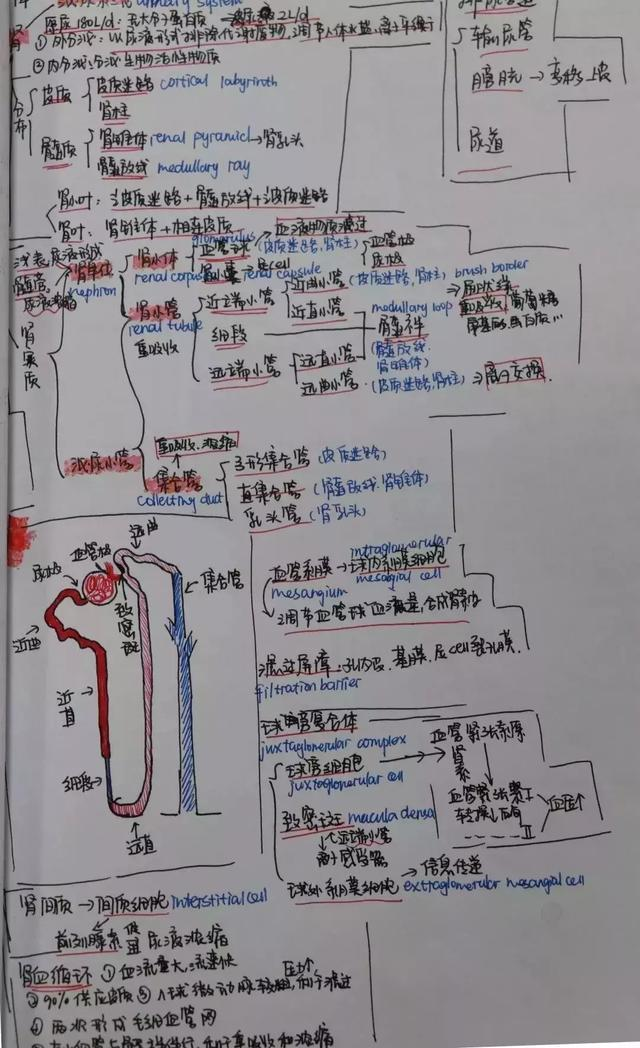 urinary system
原尿180L/d: 无大分子蛋白质
2L/d
① 外分泌: 以尿液形式排除代谢废物, 调节人体水盐, 离子平衡
② 内分泌: 分泌生物活性物质
分布
皮质
皮质迷路 cortical labyrinth
肾柱
髓质
肾锥体 renal pyramid → 肾乳头
髓放线 medullary ray
输尿管
膀胱 → 变移上皮
尿道
肾小叶: ½皮质迷路 + 髓放线 + ½皮质迷路
肾叶: 肾锥体 + 相连皮质
肾实质
肾单位
nephron
肾小体
renal corpus
glomerulus
血管球
血液物质滤过
(皮质迷路, 肾柱)
血管极
尿极
肾小囊 renal capsule
肾小管
renal tubule
重吸收
近端小管
近曲小管 (皮质迷路, 肾柱) brush border
近直小管
刷状缘
重吸收
葡萄糖
氨基酸 蛋白质...
细段
medullary loop
髓袢
(髓放线. 肾锥体)
远端小管
远直小管
远曲小管 (皮质迷路, 肾柱) ⇒ 离子交换.
泌尿小管
重吸收. 浓缩
集合管
collecting duct
弓形集合管 (皮质迷路)
直集合管 (髓放线. 肾锥体)
乳头管 (肾乳头)
远曲
血管极
尿极
致密斑
集合管
近曲
近直
细段
远直
血管系膜 → 球内系膜细胞
mesangium
intraglomerular
mesangial cell
调节血管球血流量, 合成肾素
滤过屏障: 孔内皮. 基膜. 足cell裂孔膜.
filtration barrier
球旁复合体
juxtaglomerular complex
球旁细胞
juxtaglomerular cell
肾素
血管紧张素原
血管紧张素Ⅰ
转换酶
Ⅱ
血压↑
致密斑 macula densa
远端小管
离子感受器
球外系膜细胞 → 信息传递
extraglomerular mesangial cell
肾间质 → 间质细胞 interstitial cell
前列腺素 促进 尿液浓缩
肾血循环 ① 血流量大, 流速快
② 90%供应皮质 ③ 入球微动脉较粗, 利于滤过
压力↑
④ 两次形成毛细血管网
利于重吸收和浓缩